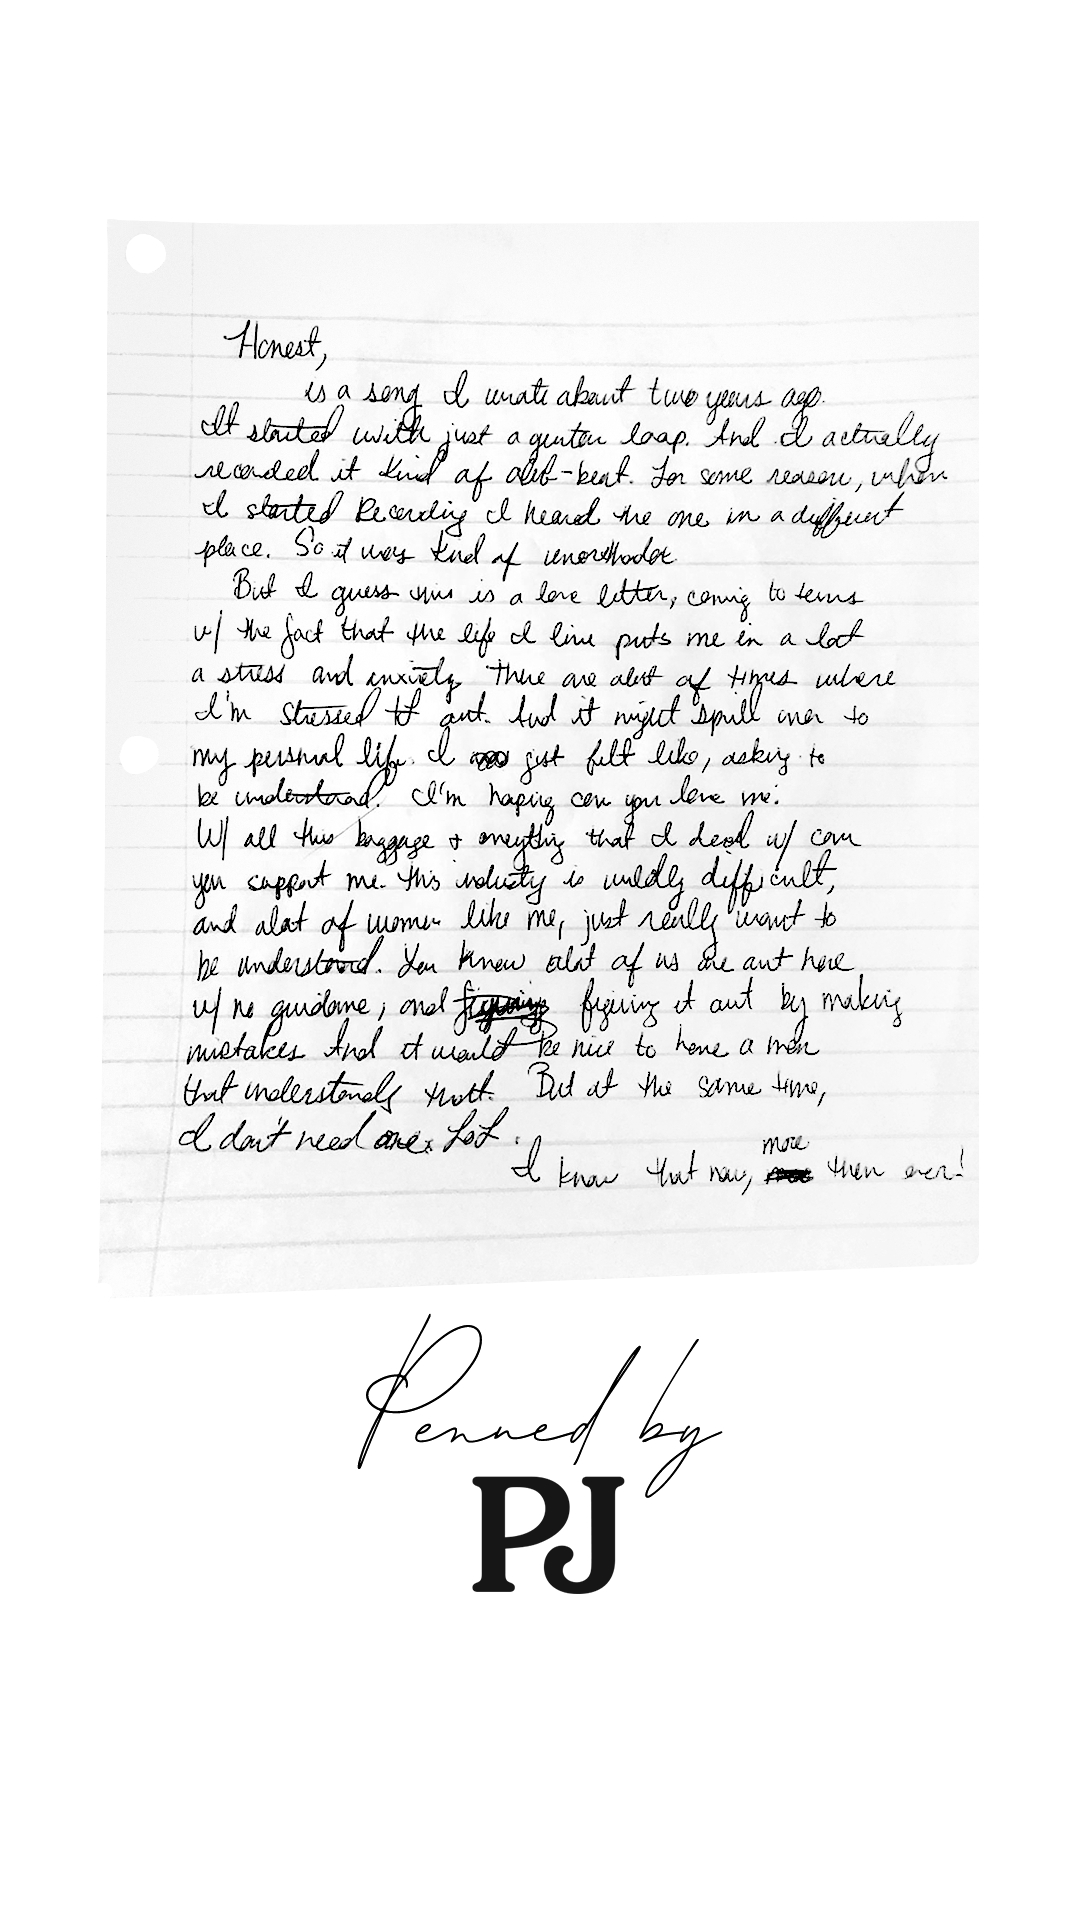 Honest,
is a song I wrote about two years ago.
It started with just a guitar loop. And I actually
recorded it kind of off-beat. For some reason, when
I started Recording I heard the one in a different
place. So it was kind of unorthodox
But I guess this is a love letter, coming to terms
w/ the fact that the life I live puts me in a lot
a stress and anxiety There are alot of times where
I'm Stressed tf out. And it might spill over to
my personal life. I just felt like, asking to
be understood. I'm hoping can you love me.
W/ all this baggage + everything that I deal w/ can
you support me. This industry is wildly difficult,
and alot of women like me, just really want to
be understood. You know alot of us are out here
w/ no guidance, and figuring it out by making
mistakes And it would be nice to have a man
that understands that. But at the same time,
I don't need one. Lol.
more
I know that now, then ever!
Penned by
PJ